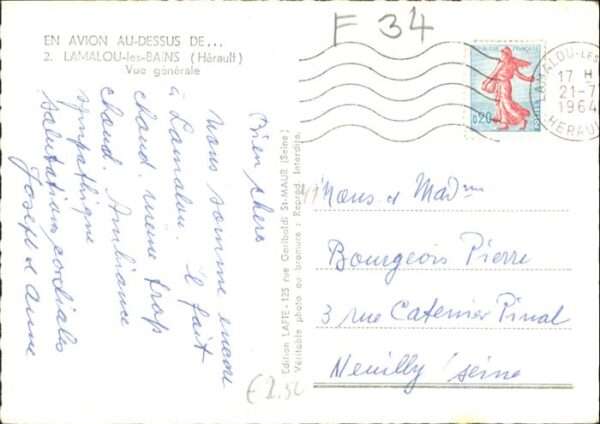 F 34
EN AVION AU-DESSUS DE...
2. LAMALOU-les-BAINS (Hérault)
Vue générale
REPUBLIQUE FRANCAISE
0,20
LAMALOU-LES
17 H
21-7
1964
HERAUL
Bien chers
nous somme encore
à Lamalou. il fait
chaud, même trop
chaud. Ambiance
sympathique
Salutations cordiales
Joseph et Anne
Edition LAFTE - 125 rue Garibaldi St-MAUR (Seine)
Véritable photo au bromure : Reprod. Interdite.
Mons. et Madme
Bourgeois Pierre
3 rue Pinal
Neuilly /seine
€2.50